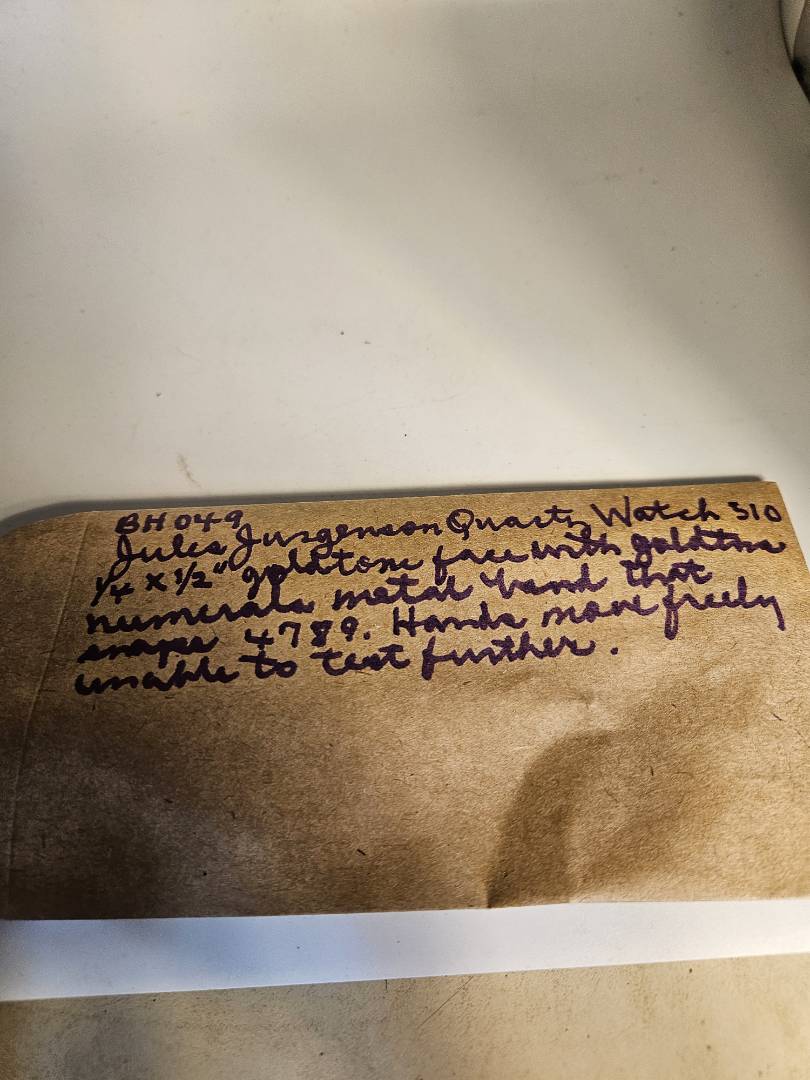 BH049
Jules Jurgenson Quartz Watch 510
1/4 x 1/2" goldtone face with goldtone
numerals metal band that
snaps 4789. Hands move freely
unable to test further.